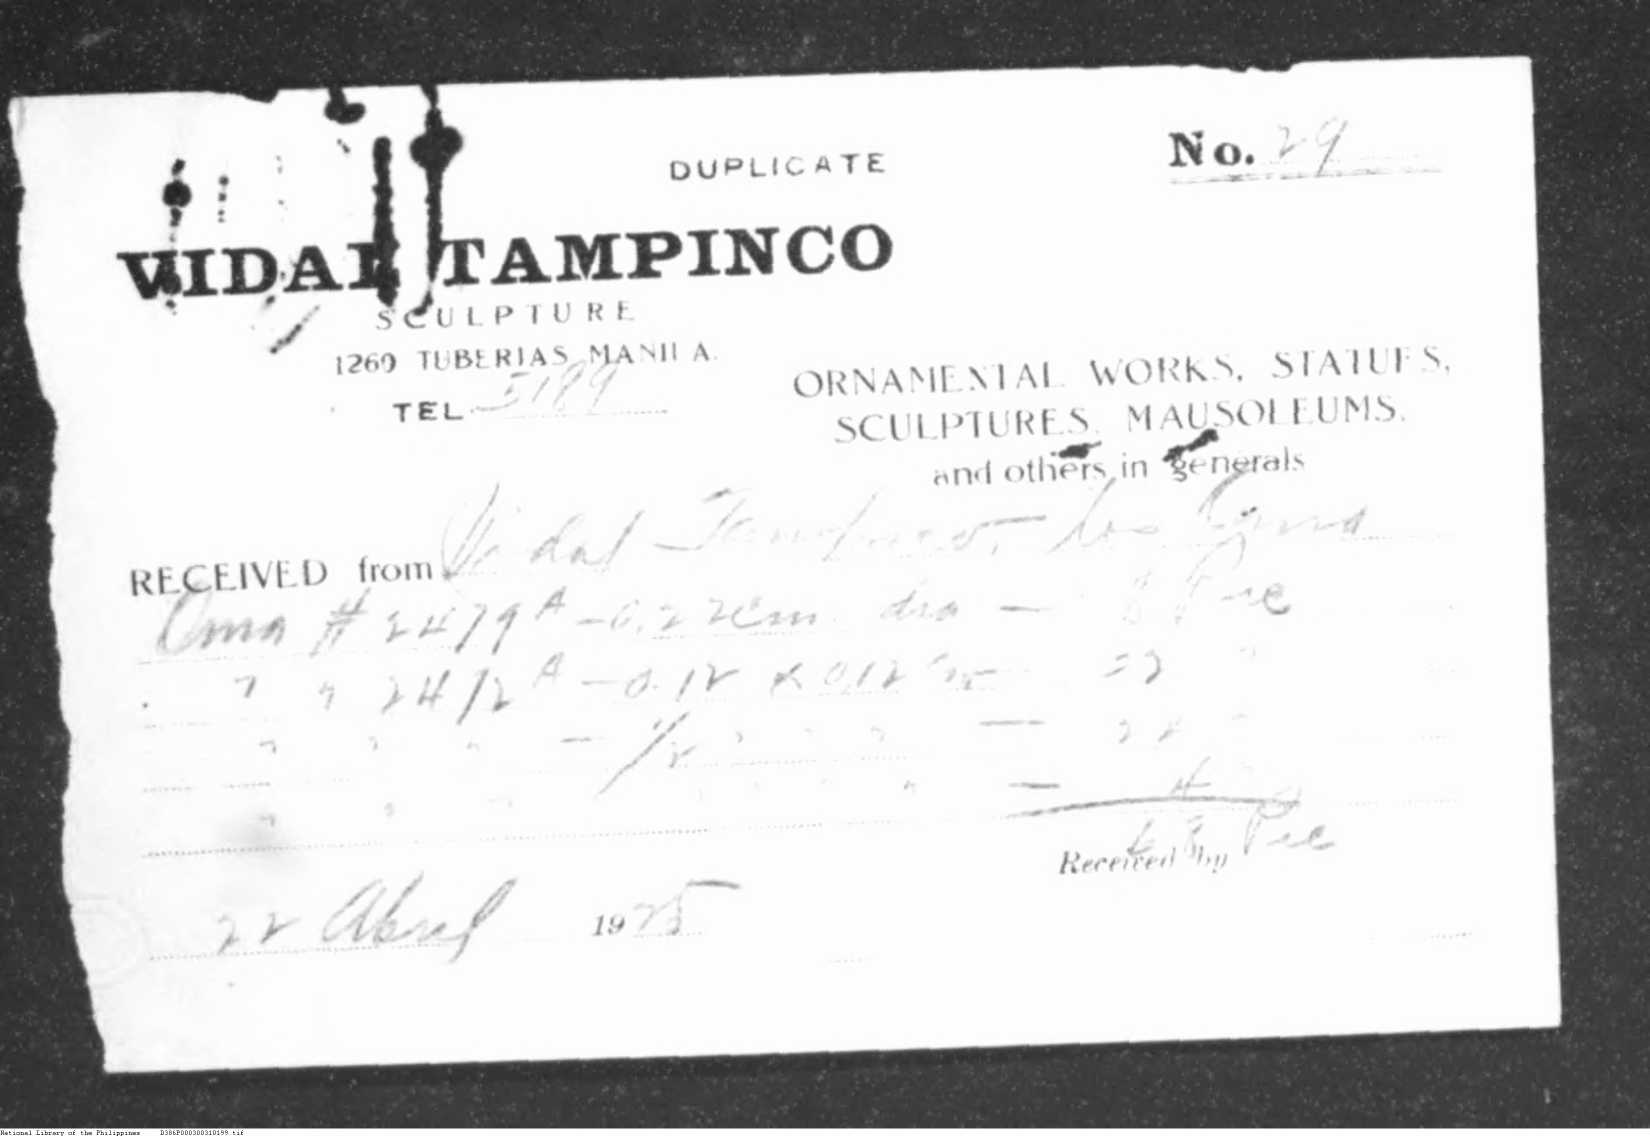 DUPLICATE
No. 29
VIDAL TAMPINCO
SCULPTURE
1260 TUBERIAS, MANILA.
TEL. 5189
ORNAMENTAL WORKS, STATUES,
SCULPTURES, MAUSOLEUMS,
and others in generals
RECEIVED from Vidal Tampinco, los
Orna # 2479 A - 0.22 cm dra — 8 Pie
" " 2412 A - 0.12 x 0.12 - 32 "
" " " - 1/2 " " " — 24 "
" " " " " " — 4
68 Pie
Received by
22 Abril 1925
National Library of the Philippines D386P000300310199.tif